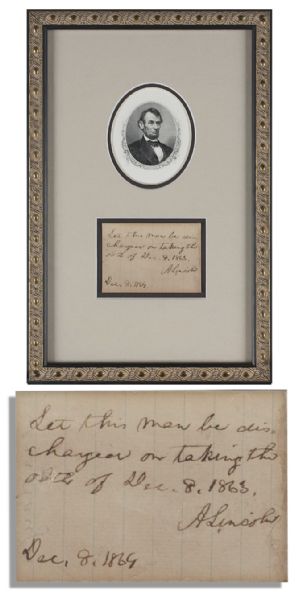 Let this man be dis-
charged on taking the
oath of Dec. 8, 1863.
A Lincoln
Dec. 8, 1864
Let this man be dis-
charged on taking the
oath of Dec. 8, 1863.
A Lincoln
Dec. 8, 1864